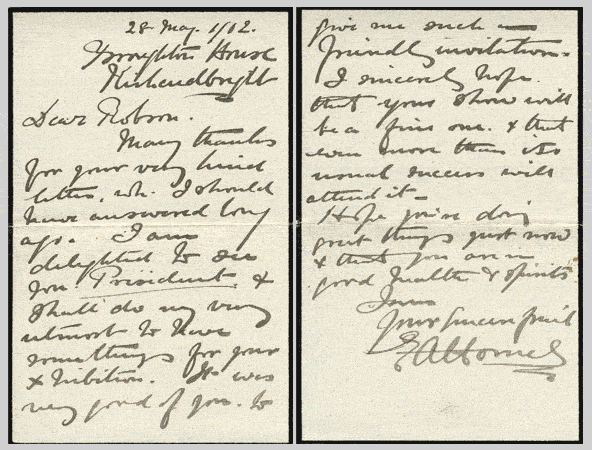 28 May 1912.
Broughton House
Kirkcudbright
Dear Robson.
Many thanks
for your very kind
letter, wh. I should
have answered long
ago. I am
delighted to see
you President &
shall do my very
utmost to have
something for your
Exhibition. It was
very good of you to
give me such a
friendly invitation.
I sincerely hope
that your show will
be a fine one. & that
even more than its
usual success will
attend it -
Hope you're doing
great things just now
& that you are in
good health & spirits
Yours sincere friend
E A Hornel